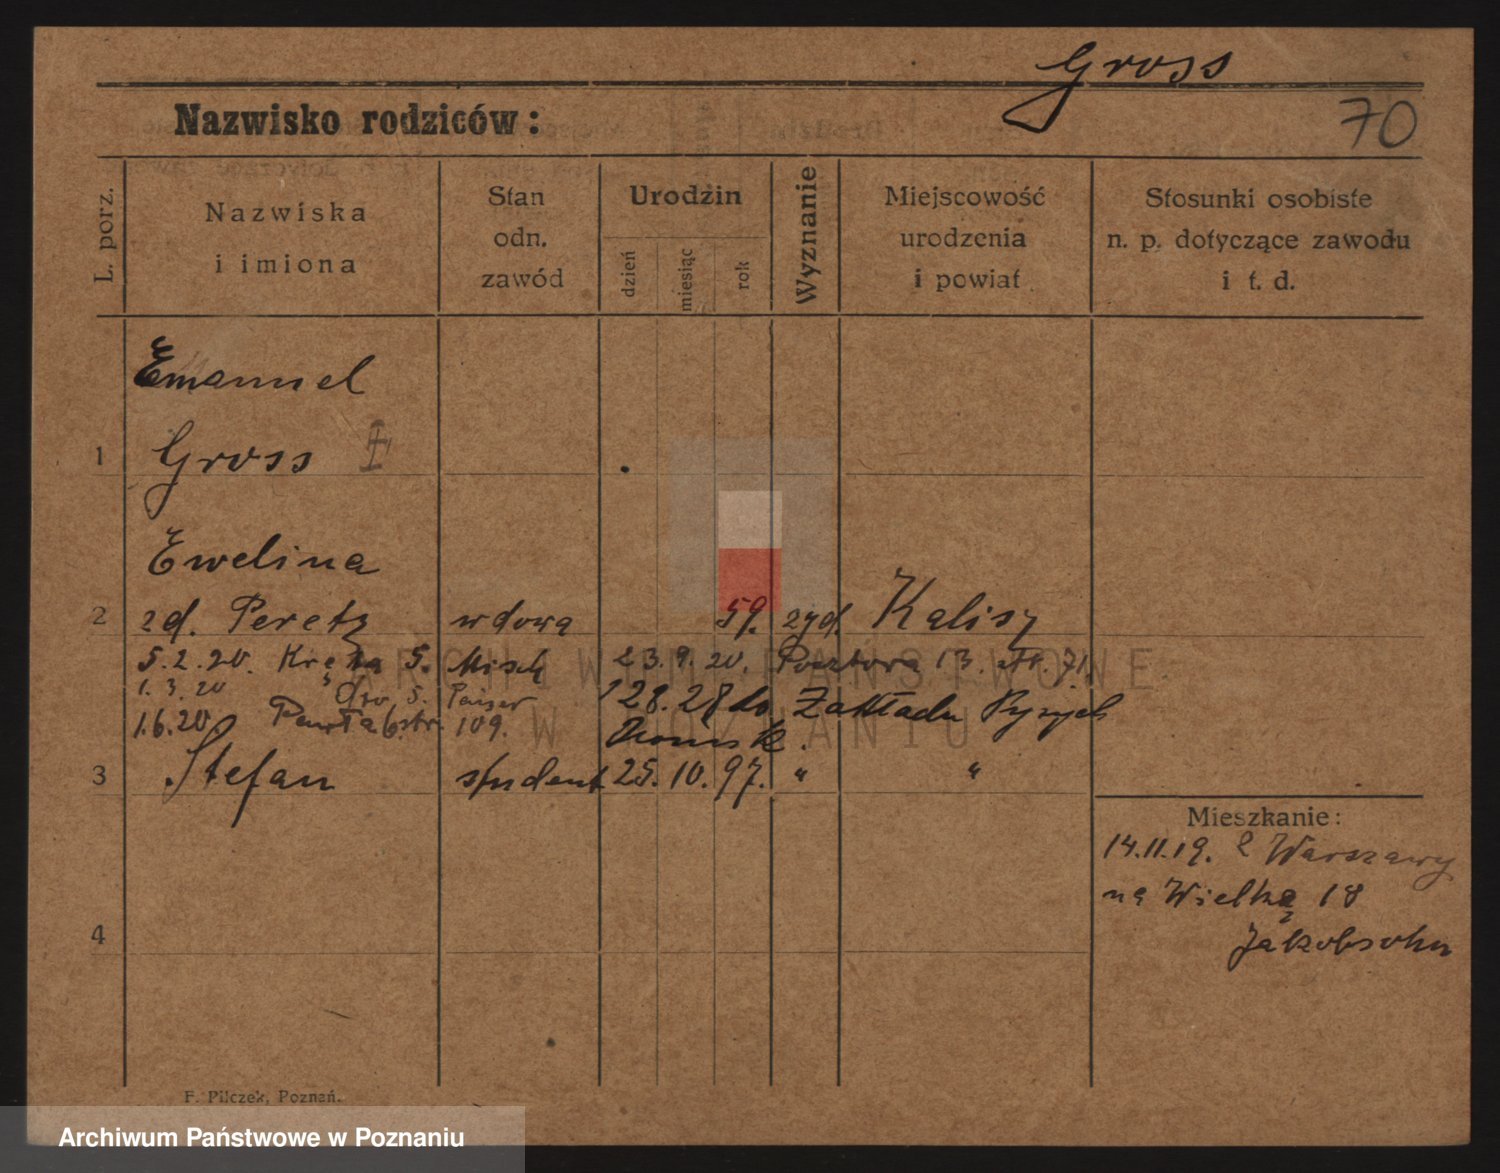 Gross
70
Nazwisko rodziców:
L. porz.
Nazwiska
i imiona
Stan
odn.
zawód
Urodzin
dzień
miesiąc
rok
Wyznanie
Miejscowość
urodzenia
i powiat
Stosunki osobiste
n. p. dotyczące zawodu
i t. d.
Emanuel
1 Gross
Ewelina
2 zd. Peretz wdowa 59. żyd. Kalisz
5.2.20. Kręta 5. Misch 23.9.20. Pocztowa 13.
1.3.20 5.
1.6.20 109. 28. Zakładu
3 Stefan student 25. 10. 97. " "
Mieszkanie:
14.11.19. z Warszawy
na Wielka 18
Jakobsohn
4
ARCHIWUM PAŃSTWOWE
W POZNANIU
F. Pilczek, Poznań.
Archiwum Państwowe w Poznaniu